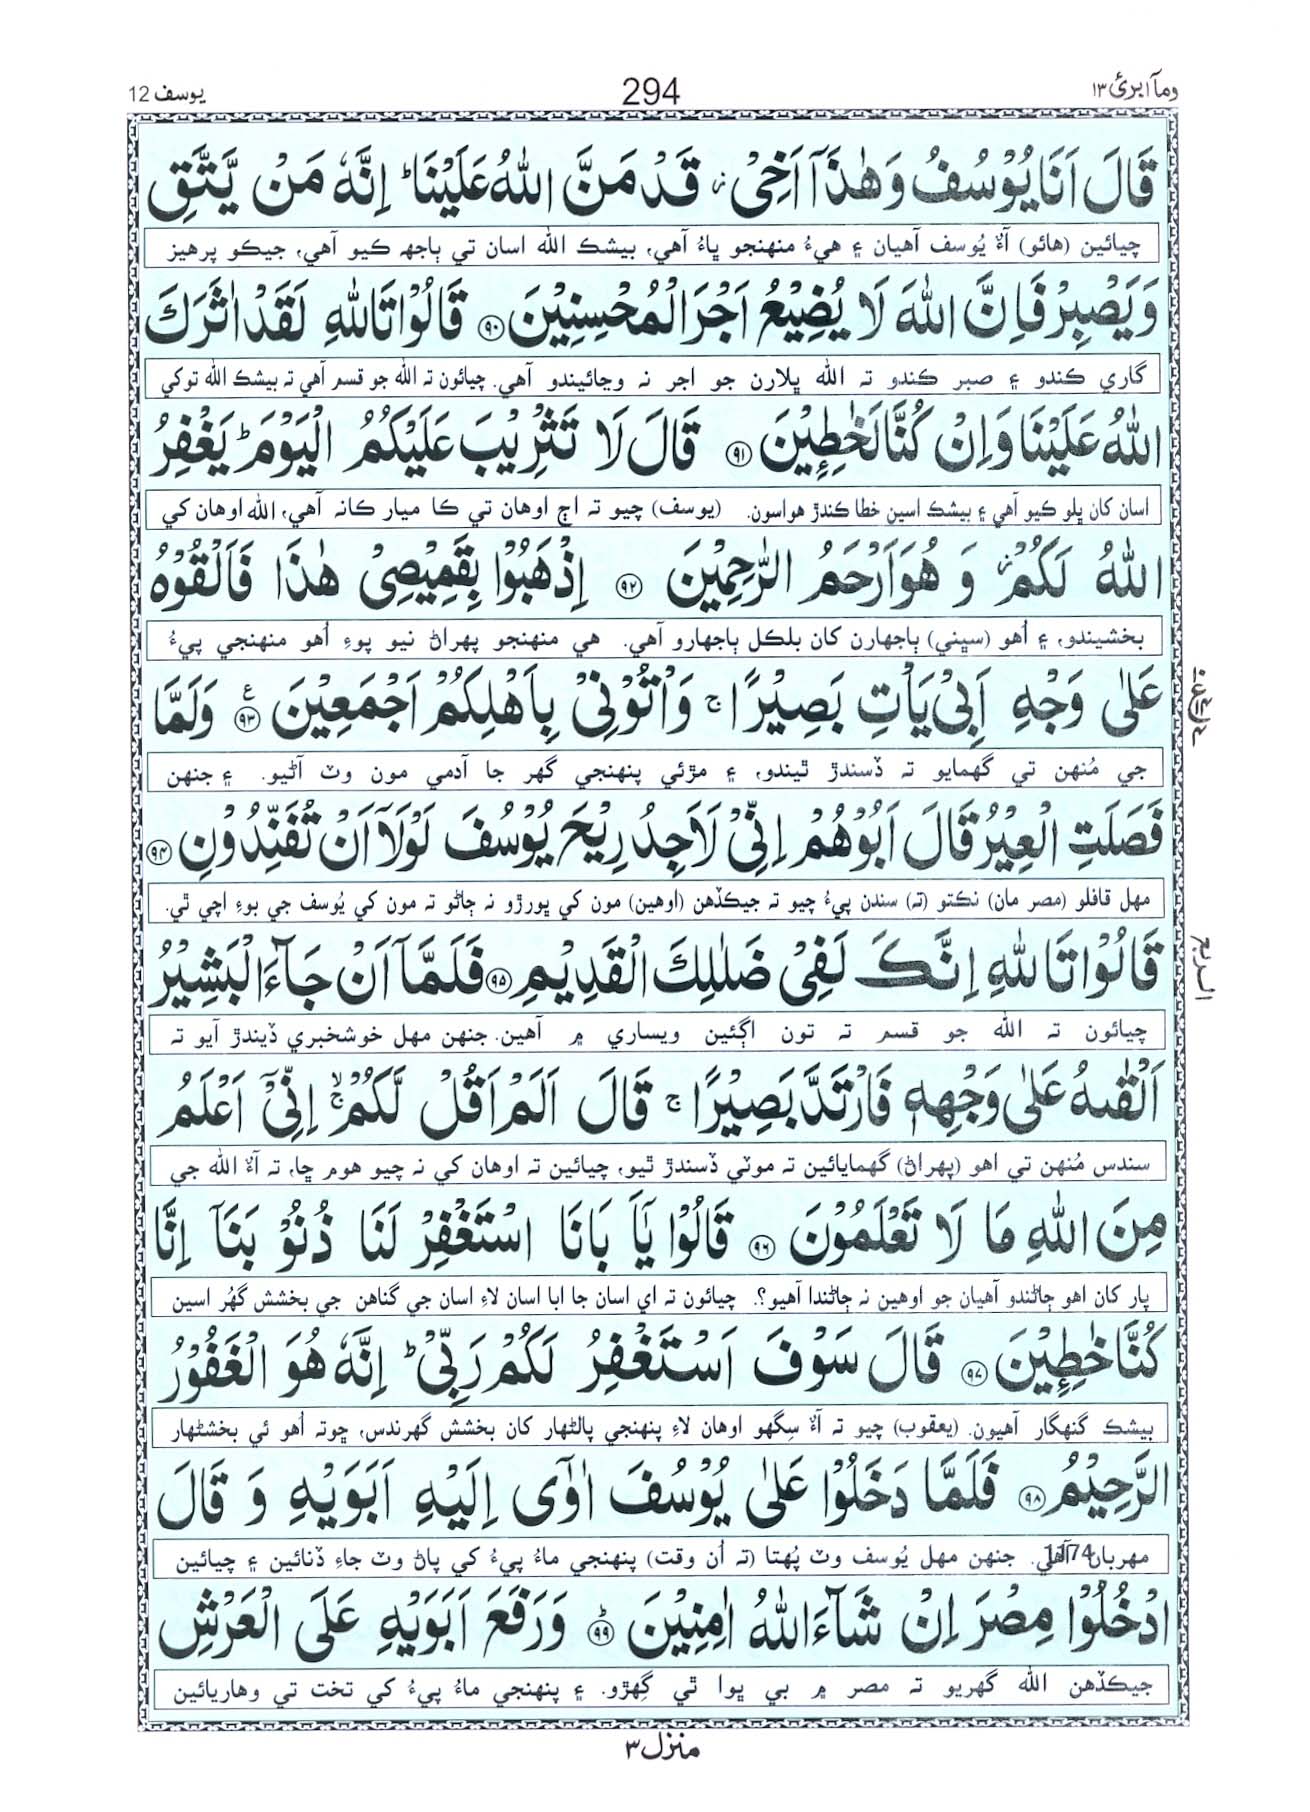 وما ابرئ ۱۳
294
يوسف 12
قَالَ اَنَا يُوْسُفُ وَهٰذَآ اَخِيْ ز قَدْ مَنَّ اللّٰهُ عَلَيْنَا ؕ اِنَّهٗ مَنْ يَّتَّقِ
چيائين (هائو) آءٌ يُوسف آهيان ۽ هيءُ منهنجو ڀاءُ آهي، بيشڪ الله اسان تي ٻاجهہ ڪيو آهي، جيڪو پرهيز
وَيَصْبِرْ فَاِنَّ اللّٰهَ لَا يُضِيْعُ اَجْرَ الْمُحْسِنِيْنَ ۹۰ قَالُوْا تَاللّٰهِ لَقَدْ اٰثَرَكَ
گاري ڪندو ۽ صبر ڪندو تہ الله ڀلارن جو اجر نہ وڃائيندو آهي. چيائون تہ الله جو قسم آهي تہ بيشڪ الله توکي
اللّٰهُ عَلَيْنَا وَاِنْ كُنَّا لَخٰطِـِٕيْنَ ۹۱ قَالَ لَا تَثْرِيْبَ عَلَيْكُمُ الْيَوْمَ ؕ يَغْفِرُ
اسان کان ڀلو ڪيو آهي ۽ بيشڪ اسين خطا ڪندڙ هواسون. (يوسف) چيو تہ اڄ اوهان تي ڪا ميار ڪانہ آهي، الله اوهان کي
اللّٰهُ لَكُمْ ز وَ هُوَ اَرْحَمُ الرّٰحِمِيْنَ ۹۲ اِذْهَبُوْا بِقَمِيْصِيْ هٰذَا فَاَلْقُوْهُ
بخشيندو، ۽ اُهو (سڀني) ٻاجهارن کان بلڪل ٻاجهارو آهي. هي منهنجو پهراڻ نيو پوءِ اُهو منهنجي پيءُ
عَلٰى وَجْهِ اَبِيْ يَاْتِ بَصِيْرًا ج وَاْتُوْنِيْ بِاَهْلِكُمْ اَجْمَعِيْنَ ۹۳ ع وَلَمَّا
جي مُنهن تي گهمايو تہ ڏسندڙ ٿيندو، ۽ مڙئي پنهنجي گهر جا آدمي مون وٽ آڻيو. ۽ جنهن
فَصَلَتِ الْعِيْرُ قَالَ اَبُوْهُمْ اِنِّيْ لَاَجِدُ رِيْحَ يُوْسُفَ لَوْلَآ اَنْ تُفَنِّدُوْنِ ۹۴
مهل قافلو (مصر مان) نڪتو (تہ) سندن پيءُ چيو تہ جيڪڏهن (اوهين) مون کي ڀورڙو نہ ڄاڻو تہ مون کي يُوسف جي بوءِ اچي ٿي.
الربع
قَالُوْا تَاللّٰهِ اِنَّكَ لَفِيْ ضَلٰلِكَ الْقَدِيْمِ ۹۵ فَلَمَّآ اَنْ جَآءَ الْبَشِيْرُ
چيائون تہ الله جو قسم تہ تون اڳئين ويساري ۾ آهين. جنهن مهل خوشخبري ڏيندڙ آيو تہ
اَلْقٰىهُ عَلٰى وَجْهِهٖ فَارْتَدَّ بَصِيْرًا ج قَالَ اَلَمْ اَقُلْ لَّكُمْ ۚۙ اِنِّيْٓ اَعْلَمُ
سندس مُنهن تي اهو (پهراڻ) گهمايائين تہ موٽي ڏسندڙ ٿيو، چيائين تہ اوهان کي نہ چيو هوم ڇا، تہ آءٌ الله جي
مِنَ اللّٰهِ مَا لَا تَعْلَمُوْنَ ۹۶ قَالُوْا يٰٓاَ بَانَا اسْتَغْفِرْ لَنَا ذُنُوْ بَنَآ اِنَّا
پار کان اهو ڄاڻندو آهيان جو اوهين نہ ڄاڻندا آهيو؟. چيائون تہ اي اسان جا ابا اسان لاءِ اسان جي گناهن جي بخشش گهُر اسين
كُنَّا خٰطِـِٕيْنَ ۹۷ قَالَ سَوْفَ اَسْتَغْفِرُ لَكُمْ رَبِّيْ ؕ اِنَّهٗ هُوَ الْغَفُوْرُ
بيشڪ گنهگار آهيون. (يعقوب) چيو تہ آءٌ سِگهو اوهان لاءِ پنهنجي پالڻهار کان بخشش گهرندس، ڇوتہ اُهو ئي بخشڻهار
الرَّحِيْمُ ۹۸ فَلَمَّا دَخَلُوْا عَلٰى يُوْسُفَ اٰوٰٓى اِلَيْهِ اَبَوَيْهِ وَ قَالَ
مهربان آهي. جنهن مهل يُوسف وٽ پُهتا (تہ اُن وقت) پنهنجي ماءُ پيءُ کي پاڻ وٽ جاءِ ڏنائين ۽ چيائين
1174
ادْخُلُوْا مِصْرَ اِنْ شَآءَ اللّٰهُ اٰمِنِيْنَ ۹۹ ؕ وَرَفَعَ اَبَوَيْهِ عَلَى الْعَرْشِ
جيڪڏهن الله گهريو تہ مصر ۾ بي ڀوا ٿي گِهڙو. ۽ پنهنجي ماءُ پيءُ کي تخت تي وهاريائين
منزل ۳